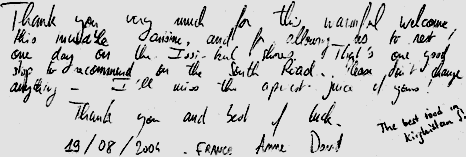 Thank you very much for this warmful welcome,
this invisible cuisine, and for allowing us to rest
one day on the Issi-kul shores. That's one good
stop to recommend on the South Road. Please don't change
anything - I'll miss the apricot juice of yours!
Thank you and best of luck.
The best food in
Kirghistan !!
19/08/2004. FRANCE Anne